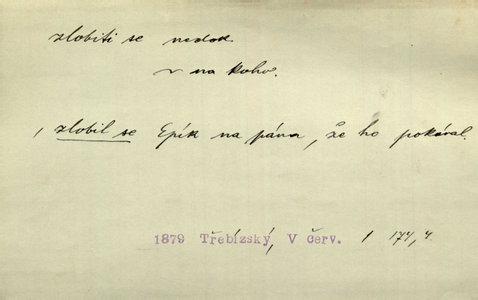 zlobiti se nedok.
v na koho.
, zlobil se Epík na pána, že ho pokáral.
1879 Třebízský, V červ. 1 174, 4